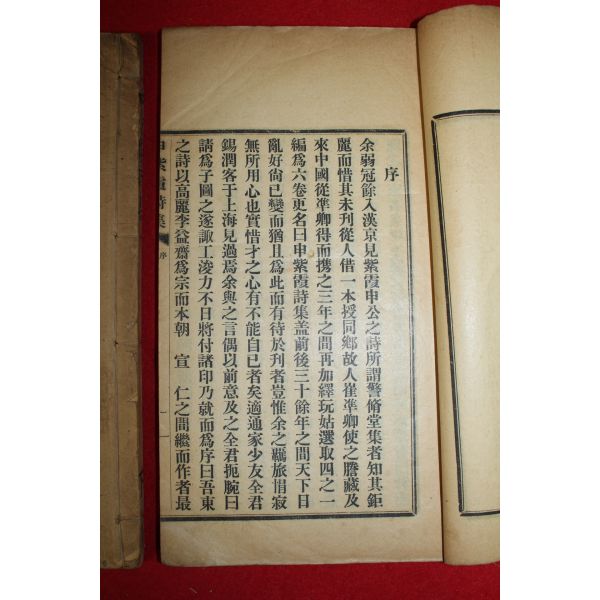 序
余弱冠餘入漢京見紫霞申公之詩所謂警脩堂集者知其鉅
麗而惜其未刊從人借一本授同鄉故人崔準卿使之謄藏及
來中國從準卿得而携之三年之間再加繹玩姑選取四之一
編爲六卷更名曰申紫霞詩集盖前後三十餘年之間天下日
亂好尙已變而猶且爲此而有待於刊者豈惟余之羈旅悁寂
無所用心也實惜才之心有不能自已者矣適通家少友全君
錫潤客于上海見過焉余與之言偶以前意及之全君扼腕曰
請爲子圖之遂諏工浚力不日將付諸印乃就而爲序曰吾東
之詩以高麗李益齋爲宗而本朝 宣 仁之間繼而作者最
申紫霞詩集
序
一